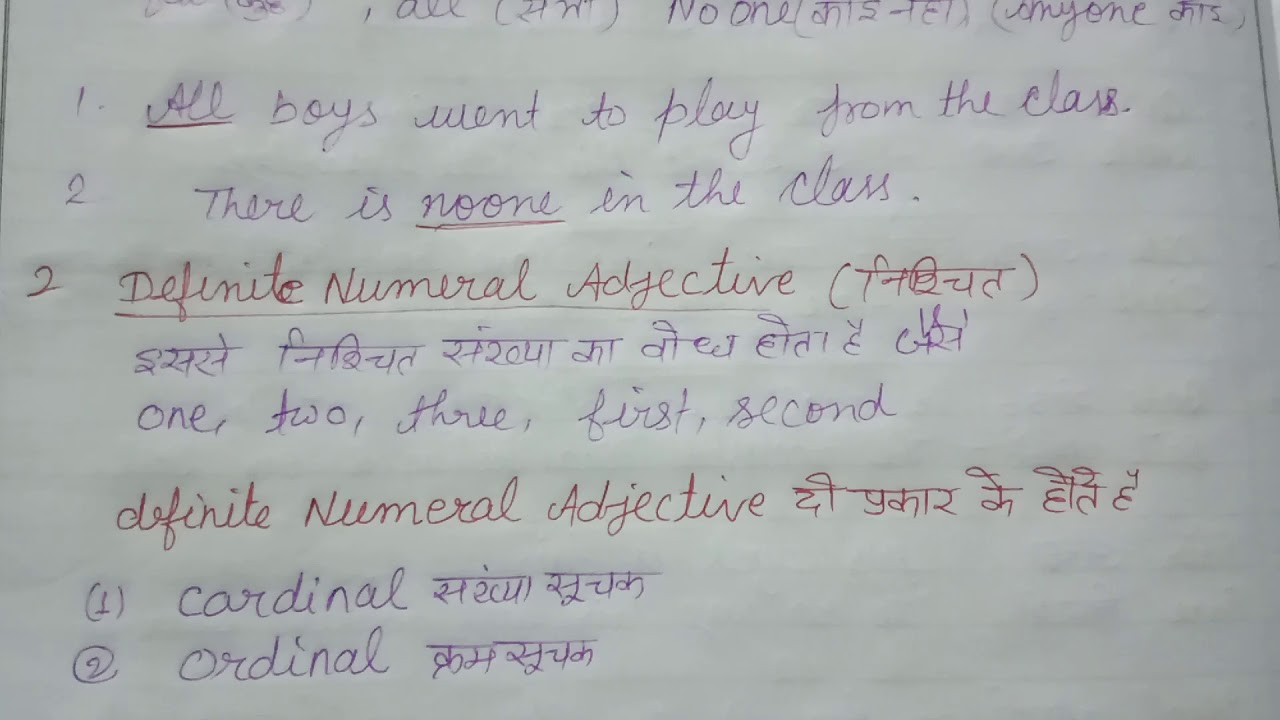 , all (सभी) No one (कोई नहीं) (Anyone कोई)
1. All boys went to play from the class.
2 There is noone in the class.
2 Definite Numeral Adjective (निश्चित)
इससे निश्चित संख्या का वोध होता है जैसे
one, two, three, first, second
definite Numeral Adjective दो प्रकार के होते है
(1) Cardinal संख्या सूचक
(2) Ordinal क्रम सूचक